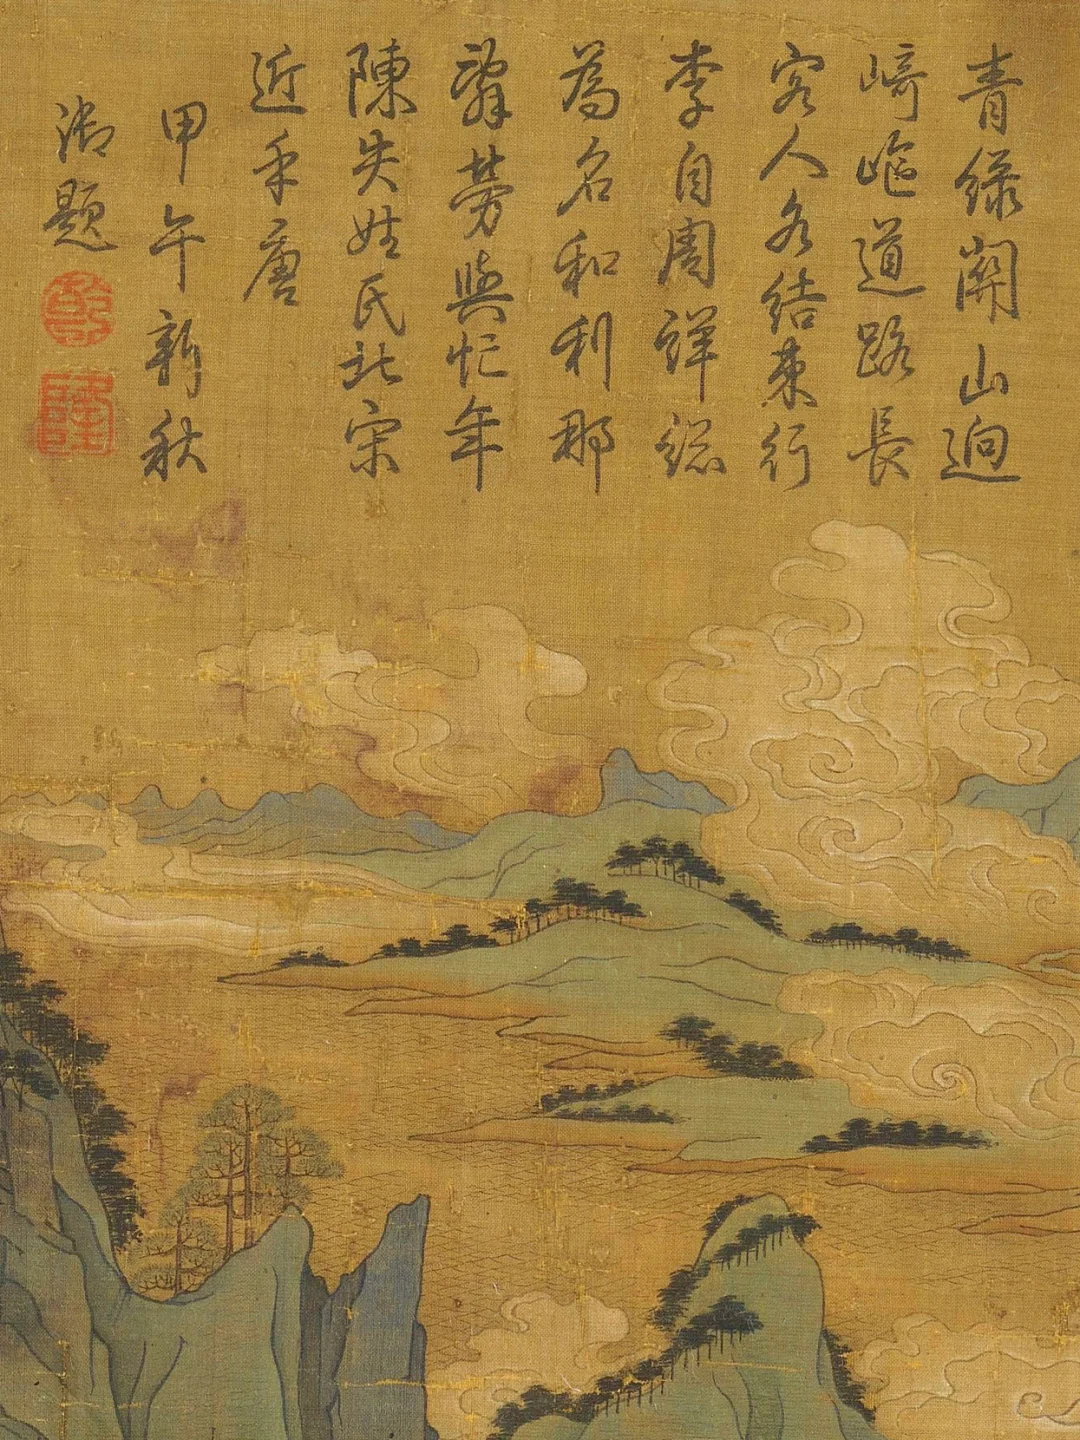 青綠關山迥
崎嶇道路長
客人各結束行
李自周詳總
為名和利那
辭勞與忙年
陳失姓氏北宋
近乎唐
甲午新秋
御題
乾
隆